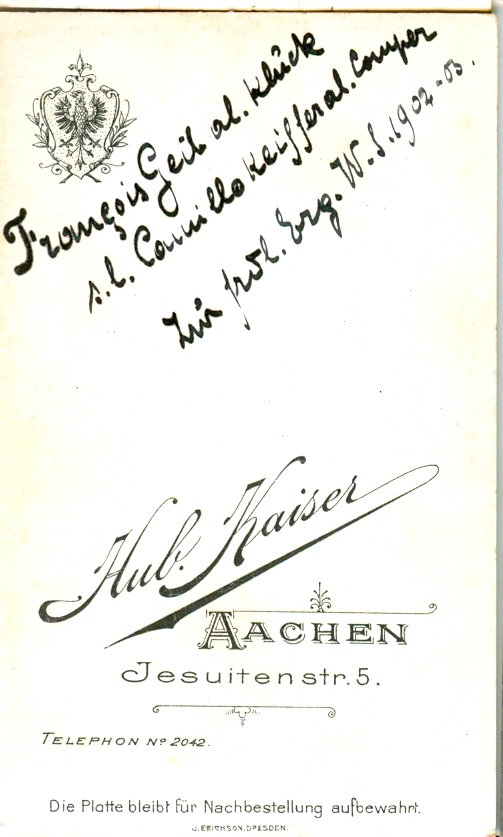 François Geib al. Klück
s. l. Camillo Keifferal. Comper
Zur fröl. Erg. W. S. 1902-03.
Hub. Kaiser
AACHEN
Jesuitenstr. 5.
TELEPHON Nº 2042.
Die Platte bleibt für Nachbestellung aufbewahrt.
J. ERICHSON, DRESDEN.